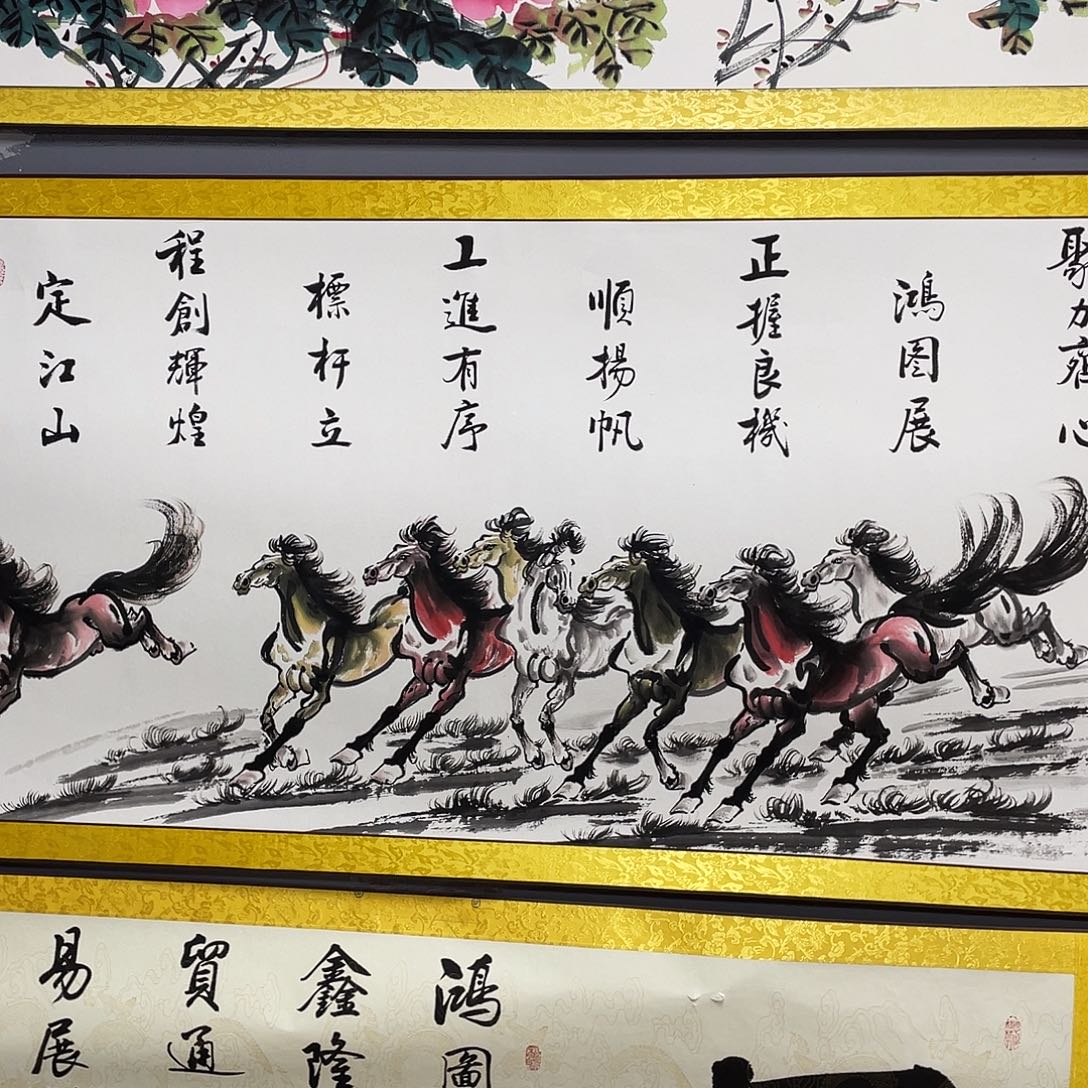 聚力齊心
鴻图展
正握良機
順揚帆
工進有序
標杆立
程創輝煌
定江山
鴻圖
鑫隆
貿通
易展